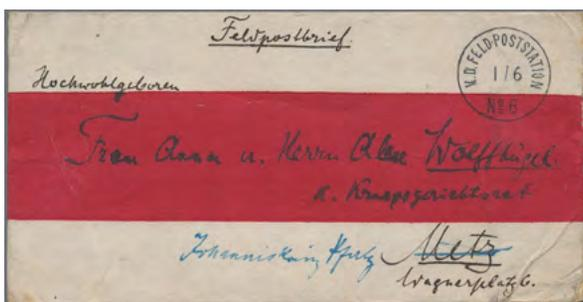 Feldpostbrief.
K.D. FELD-POSTSTATION
1/6
No 6
Hochwohlgeboren
Frau Anna u. Herrn Alex Wolffhügel.
K. Kriegsgerichtsrat
Johanniskreuz Pfalz Metz
Wagnerplatz 6.